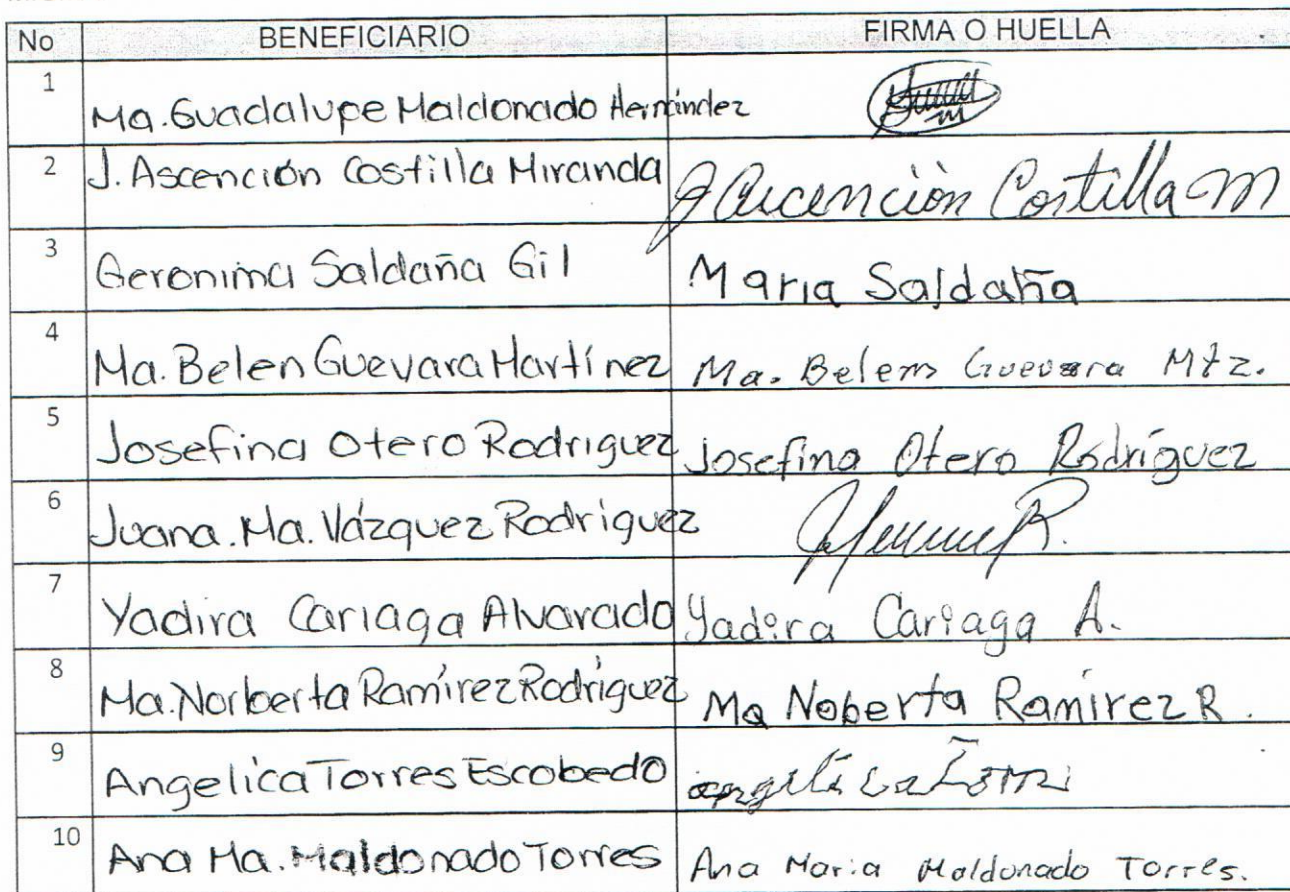 No BENEFICIARIO FIRMA O HUELLA
1 Ma. Guadalupe Maldonado Hernández
2 J. Ascención Costilla Miranda J Ascención Costilla M
3 Geronima Saldaña Gil Maria Saldaña
4 Ma. Belen Guevara Martínez Ma. Belem Guevara Mtz.
5 Josefina Otero Rodriguez Josefina Otero Rodríguez
6 Juana. Ma. Vázquez Rodríguez
7 Yadira Cariaga Alvarado Yadira Cariaga A.
8 Ma. Norberta Ramírez Rodríguez Ma Noberta Ramírez R.
9 Angelica Torres Escobedo
10 Ana Ma. Maldonado Torres Ana Maria Maldonado Torres.